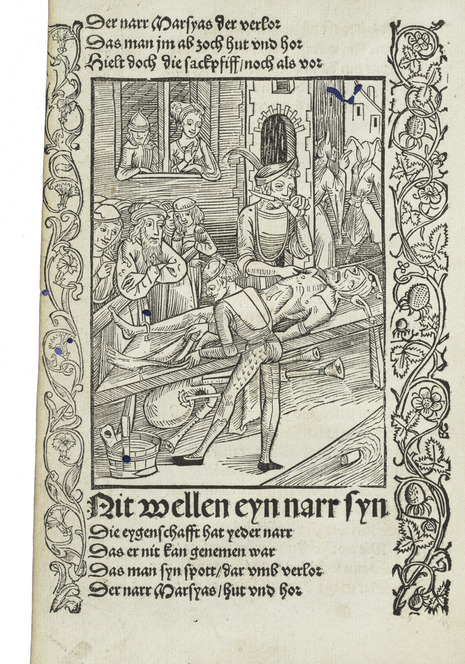 Der narr Marsyas der verlor
Das man jm ab zoch hut vnd hor
Hielt doch die sackpfiff/ noch als vor
Nit wellen eyn narr syn
Die eygenschafft hat yeder narr
Das er nit kan genemen war
Das man syn spott/ dar vmb verlor
Der narr Marsyas/ hut vnd hor